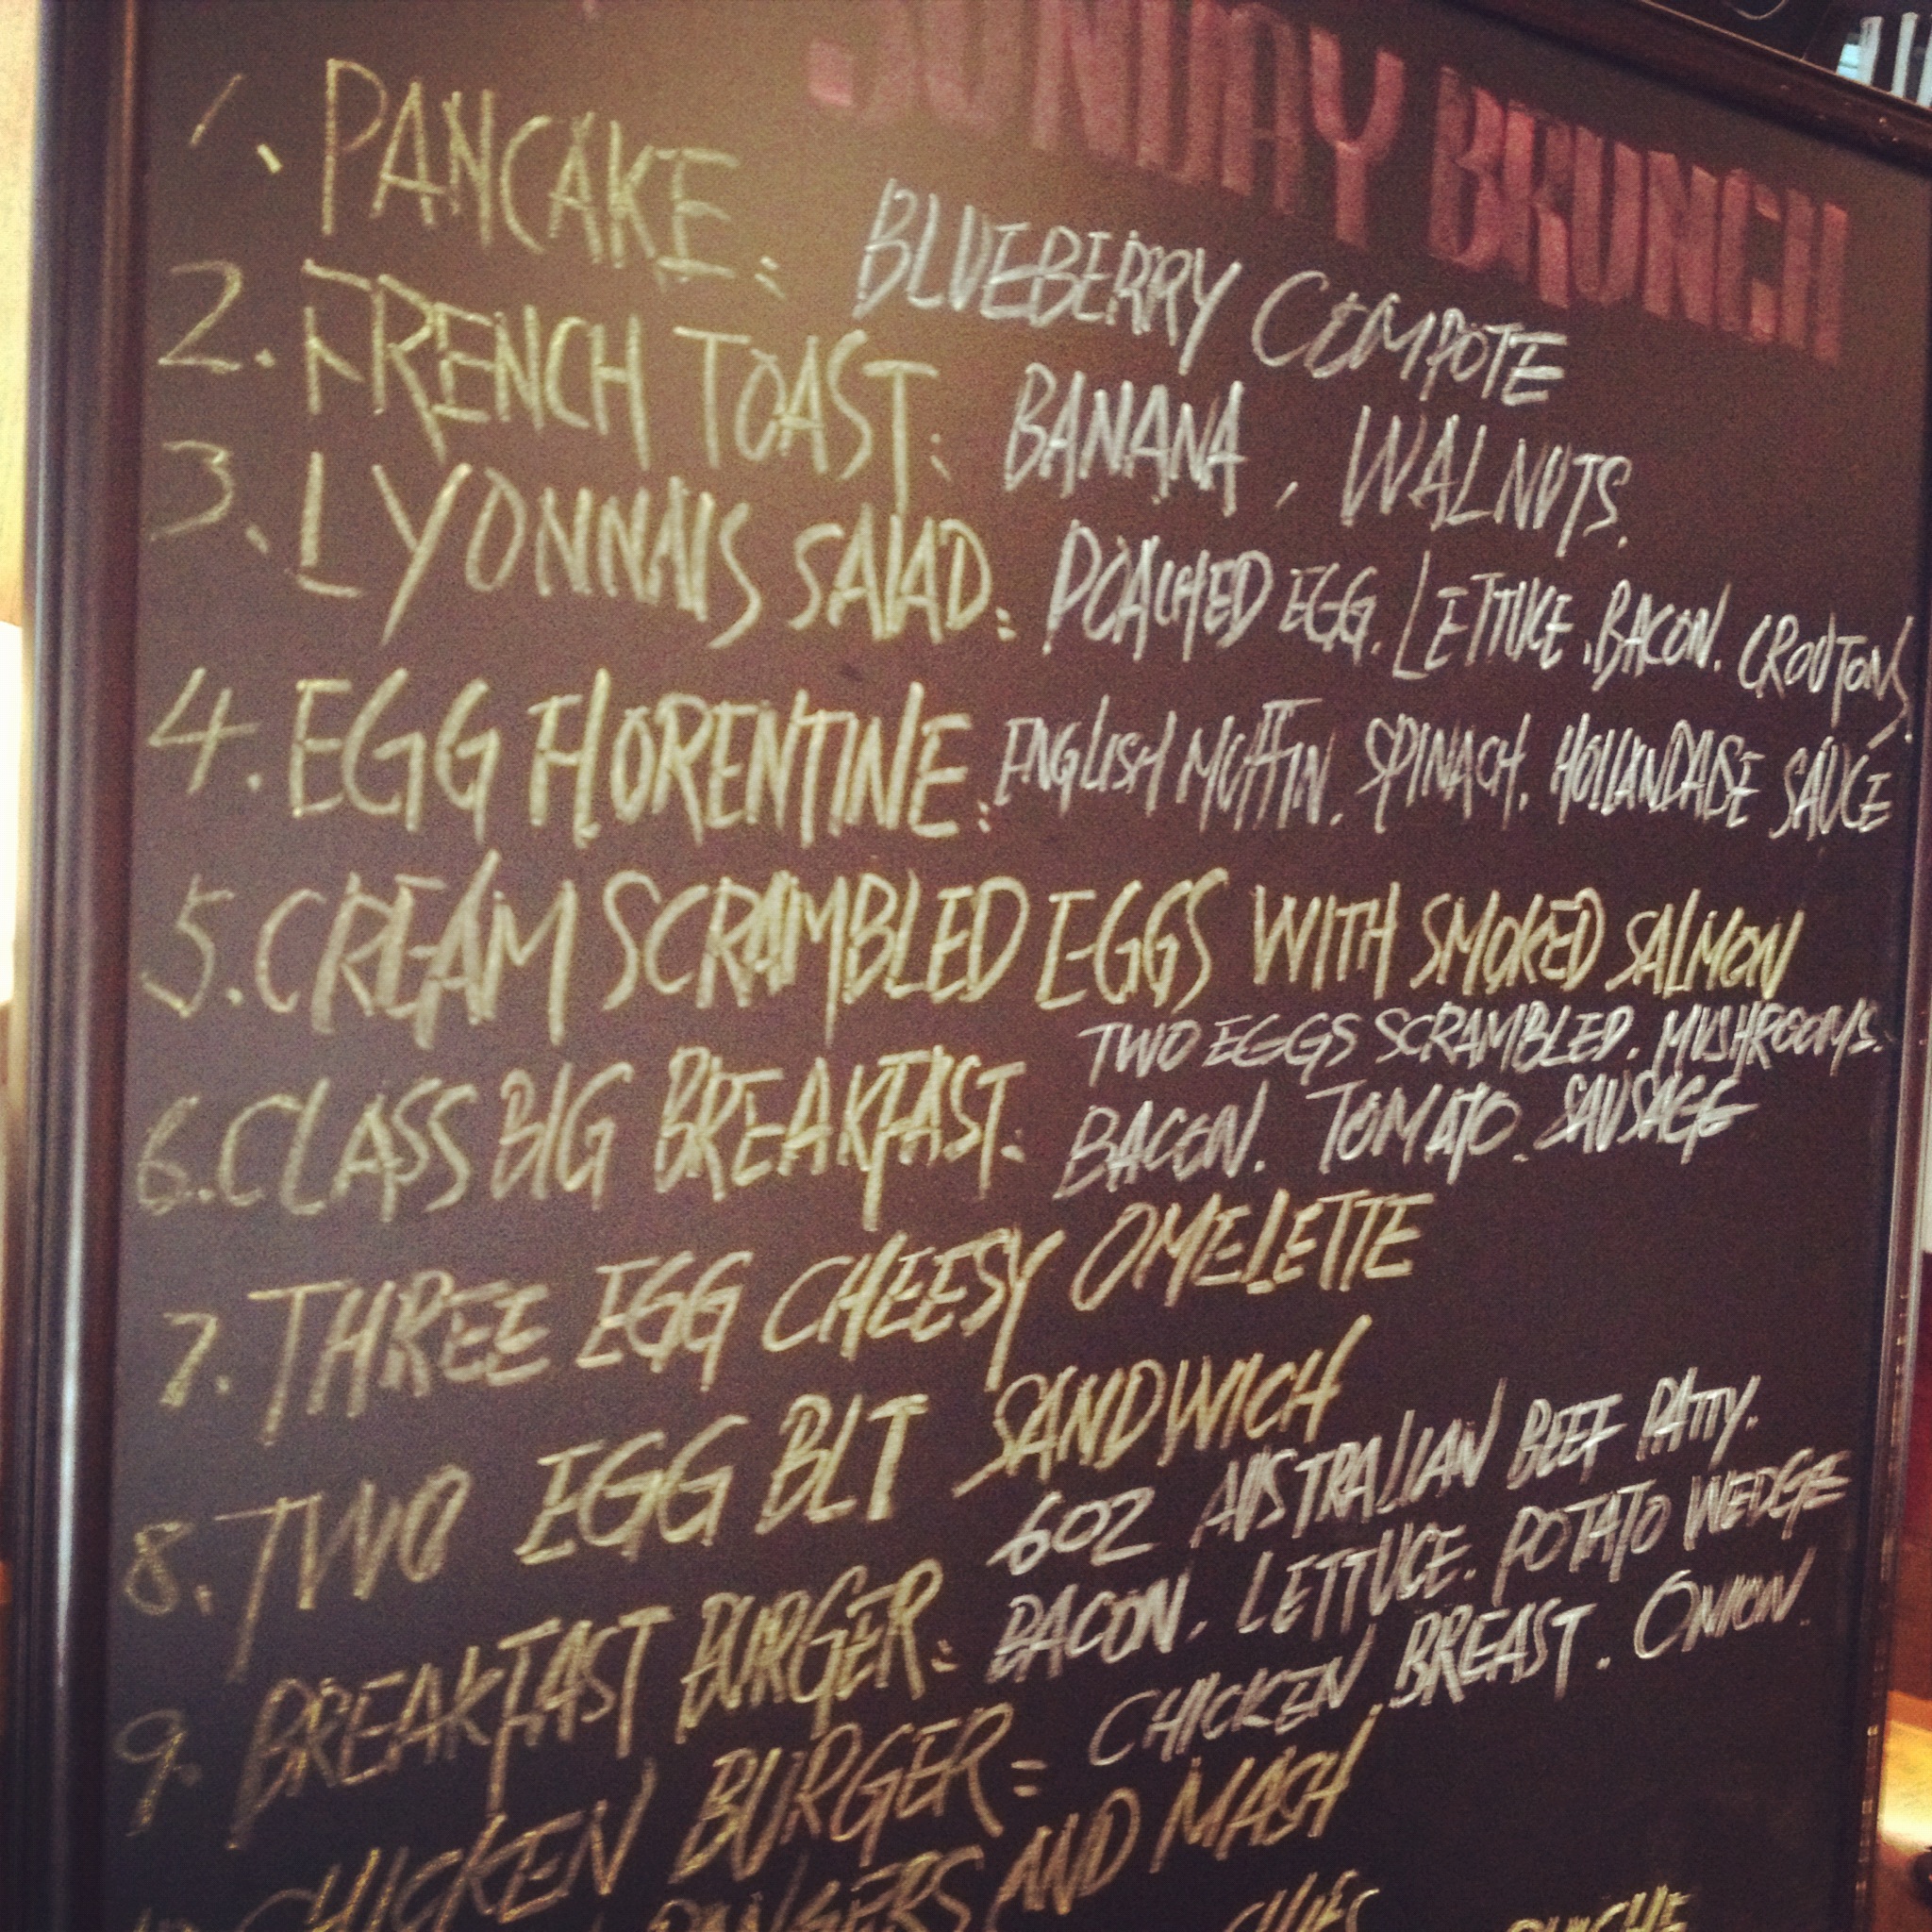 SUNDAY BRUNCH
1. PANCAKE: BLUEBERRY COMPOTE
2. FRENCH TOAST: BANANA, WALNUTS.
3. LYONNAIS SALAD: POACHED EGG. LETTUCE. BACON. CROUTONS.
4. EGG FLORENTINE: ENGLISH MUFFIN. SPINACH. HOLLANDAISE SAUCE
5. CREAM SCRAMBLED EGGS WITH SMOKED SALMON
6. CLASS BIG BREAKFAST: TWO EGGS SCRAMBLED. MUSHROOMS.
BACON. TOMATO. SAUSAGE
7. THREE EGG CHEESY OMELETTE
8. TWO EGG BLT SANDWICH
9. BREAKFAST BURGER: 6OZ AUSTRALIAN BEEF PATTY.
BACON. LETTUCE. POTATO WEDGE
CHICKEN BURGER: CHICKEN BREAST. ONION.
BANGERS AND MASH
QUICHE